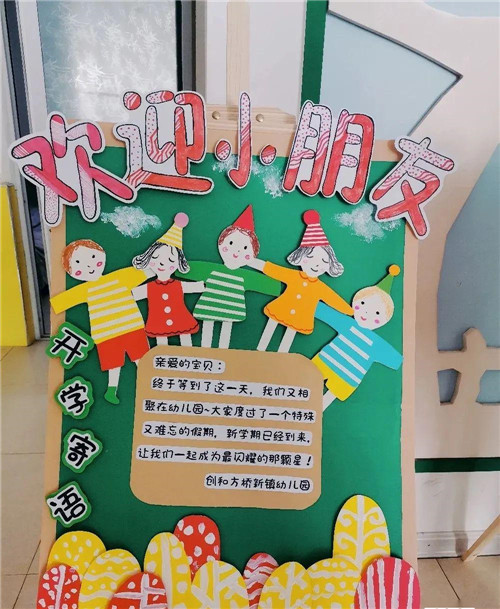 欢迎小朋友
开学寄语
亲爱的宝贝：
终于等到了这一天，我们又相
聚在幼儿园~大家度过了一个特殊
又难忘的假期，新学期已经到来，
让我们一起成为最闪耀的那颗星！
创和方桥新镇幼儿园